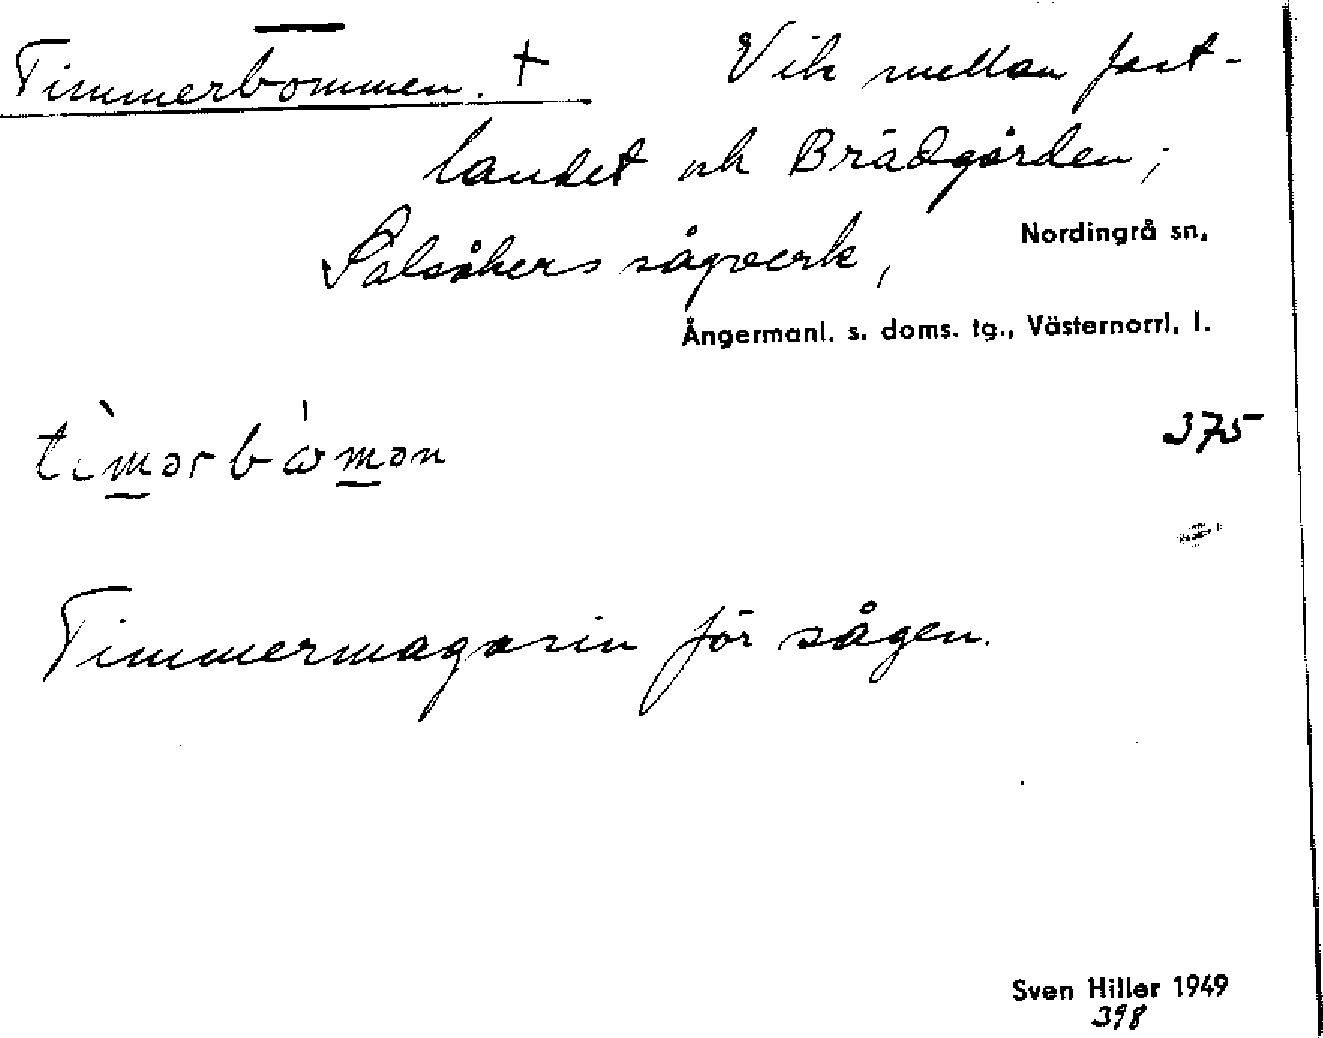 Timmerbommen. + Vik mellan fast-
landet och Brädgården;
Salsåkers sågverk, Nordingrå sn,
Ångermanl. s. doms. tg., Västernorrl. l.
375
Timmermagasin för sågen.
Sven Hiller 1949
398